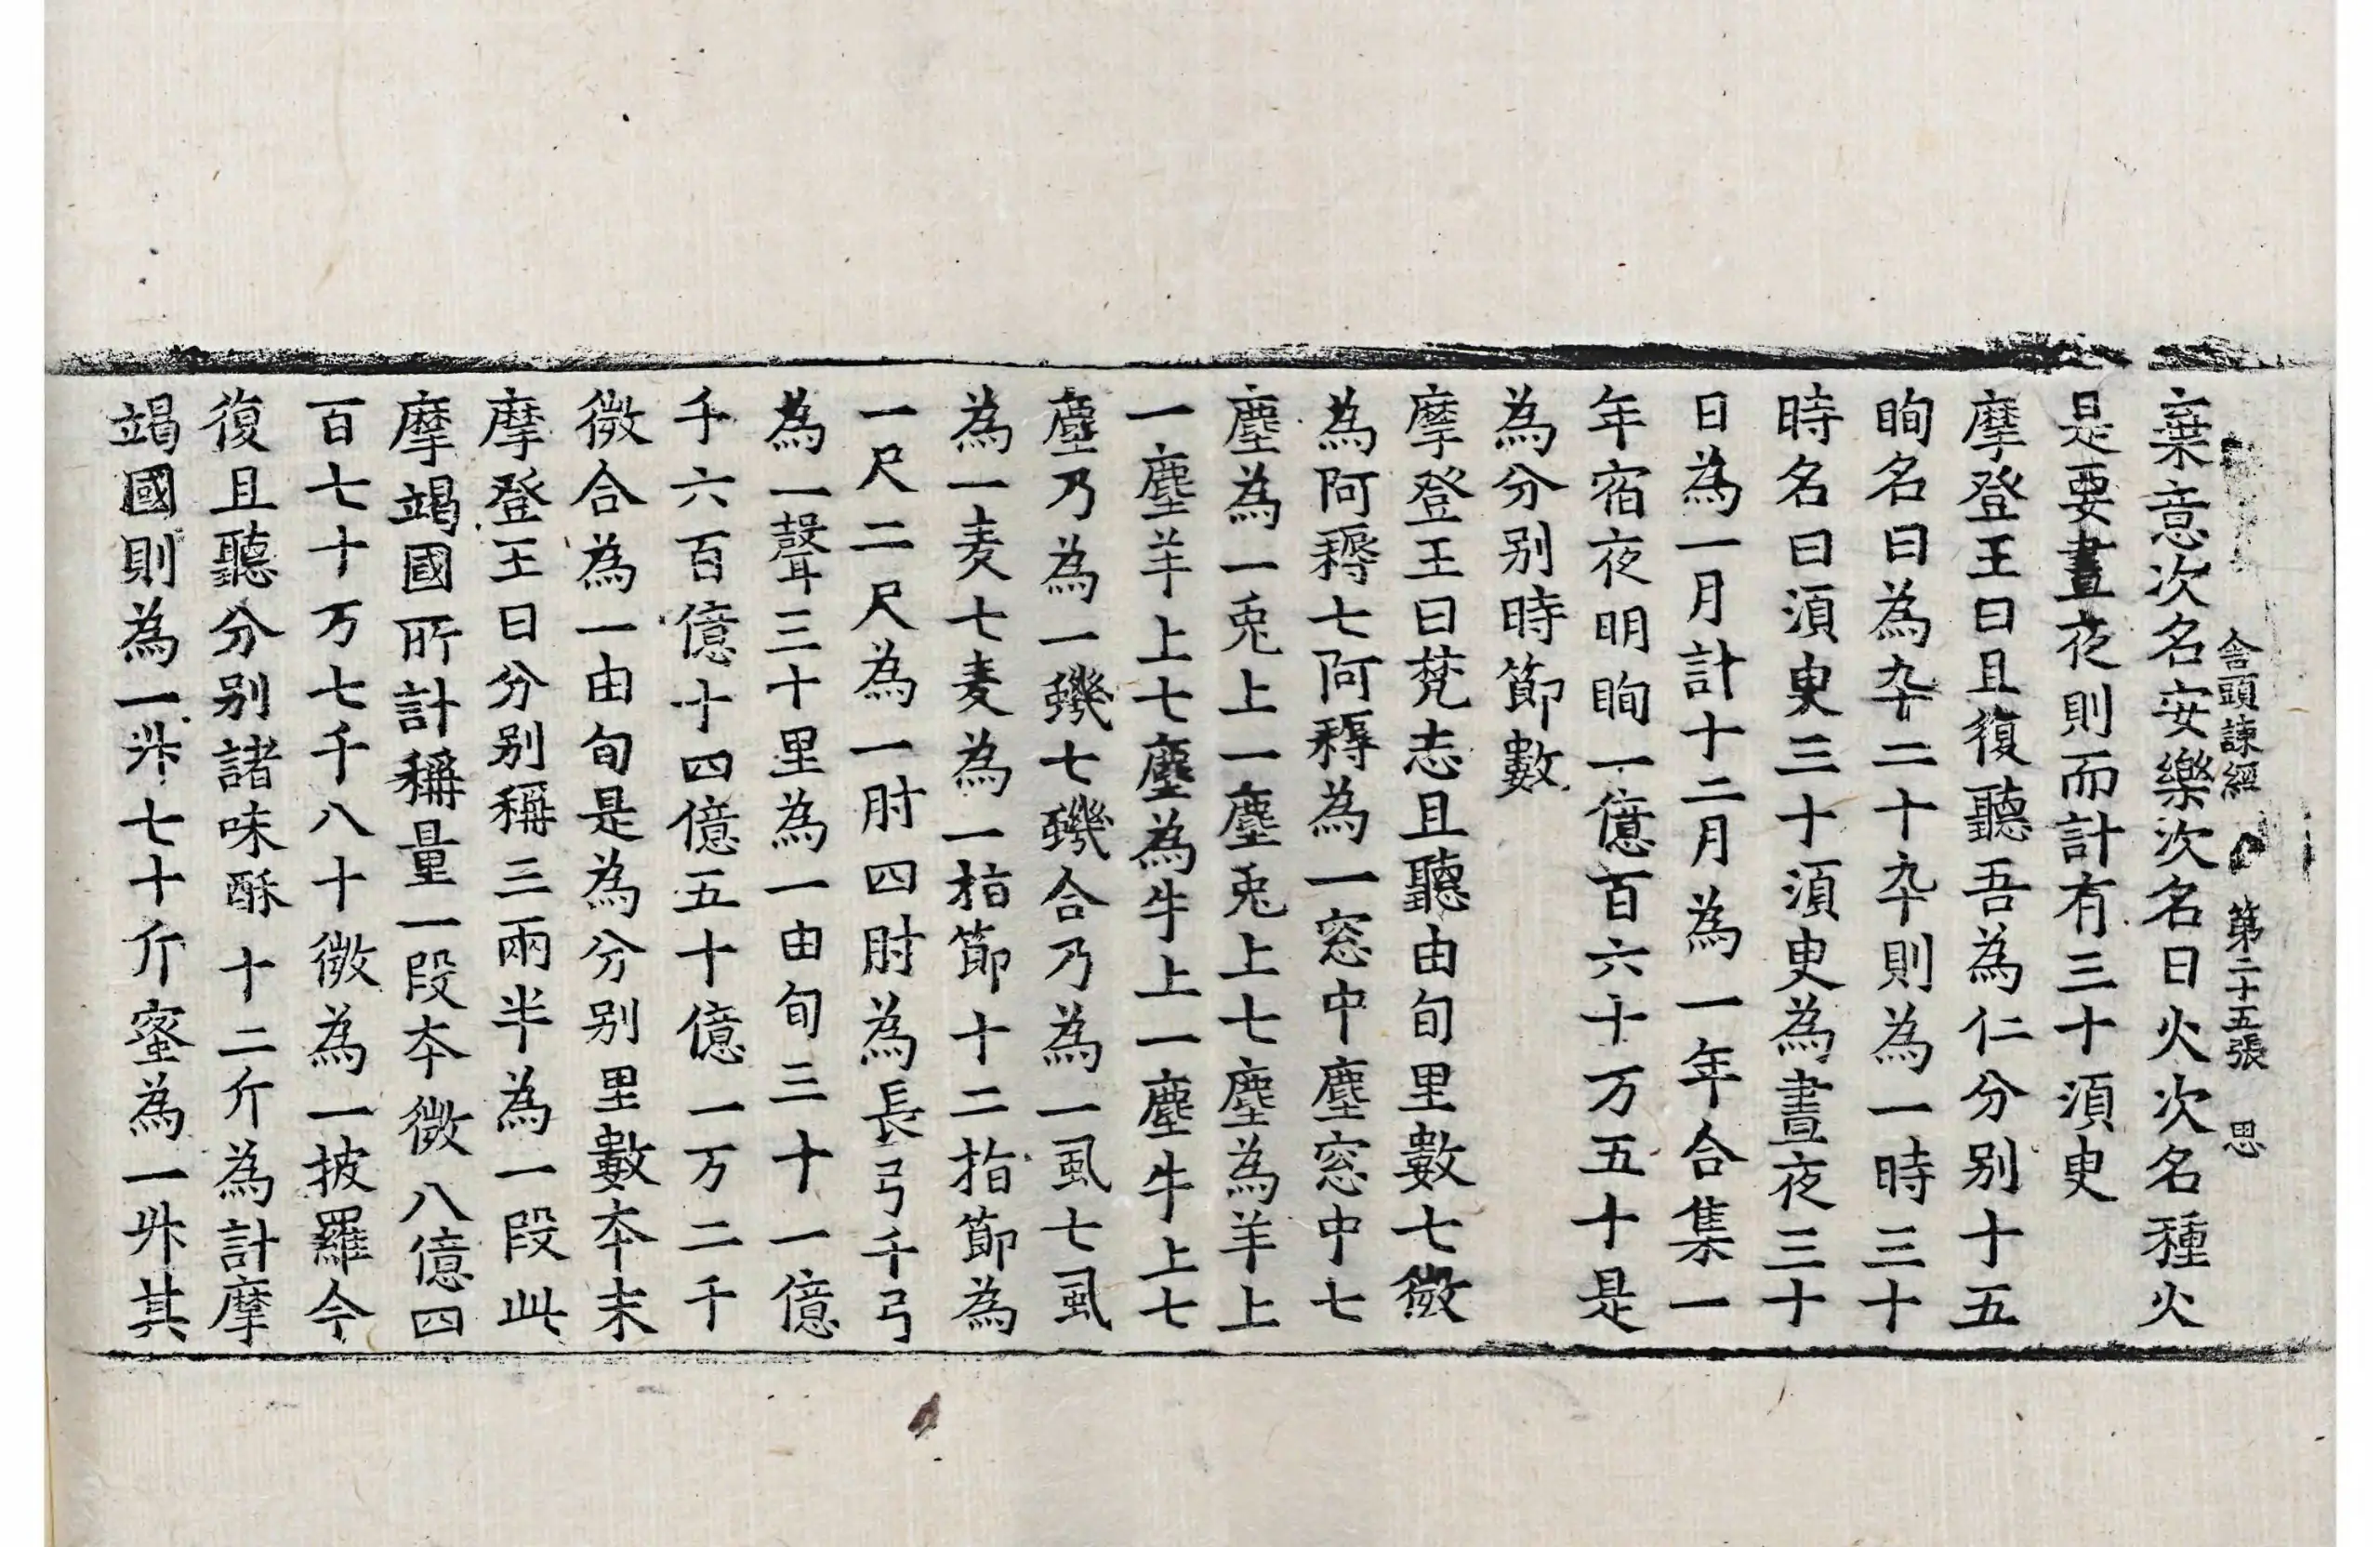 舍頭諫經 第二十五張 思
棄意次名安樂次名曰火次名種火
是要晝夜則而計有三十湏臾
摩登王曰且復聽吾為仁分别十五
眴名曰為卆二十卆則為一時三十
時名曰湏臾三十湏臾為晝夜三十
日為一月計十二月為一年合集一
年宿夜明眴一億百六十万五十是
為分别時節數
摩登王曰梵志且聽由旬里數七微
為阿䅶七阿䅶為一窓中塵窓中七
塵為一兎上一塵兎上七塵為羊上
一塵羊上七塵為牛上一塵牛上七
塵乃為一蟣七蟣合乃為一虱七虱
為一麦七麦為一指節十二指節為
一尺二尺為一肘四肘為長弓千弓
為一聲三十里為一由旬三十一億
千六百億十四億五十億一万二千
微合為一由旬是為分别里數本末
摩登王曰分别稱三兩半為一段此
摩竭國所計稱量一段本微八億四
百七十万七千八十微為一披羅今
復且聽分别諸味酥十二斤為計摩
竭國則為一𣂏七十斤蜜為一𣂏其